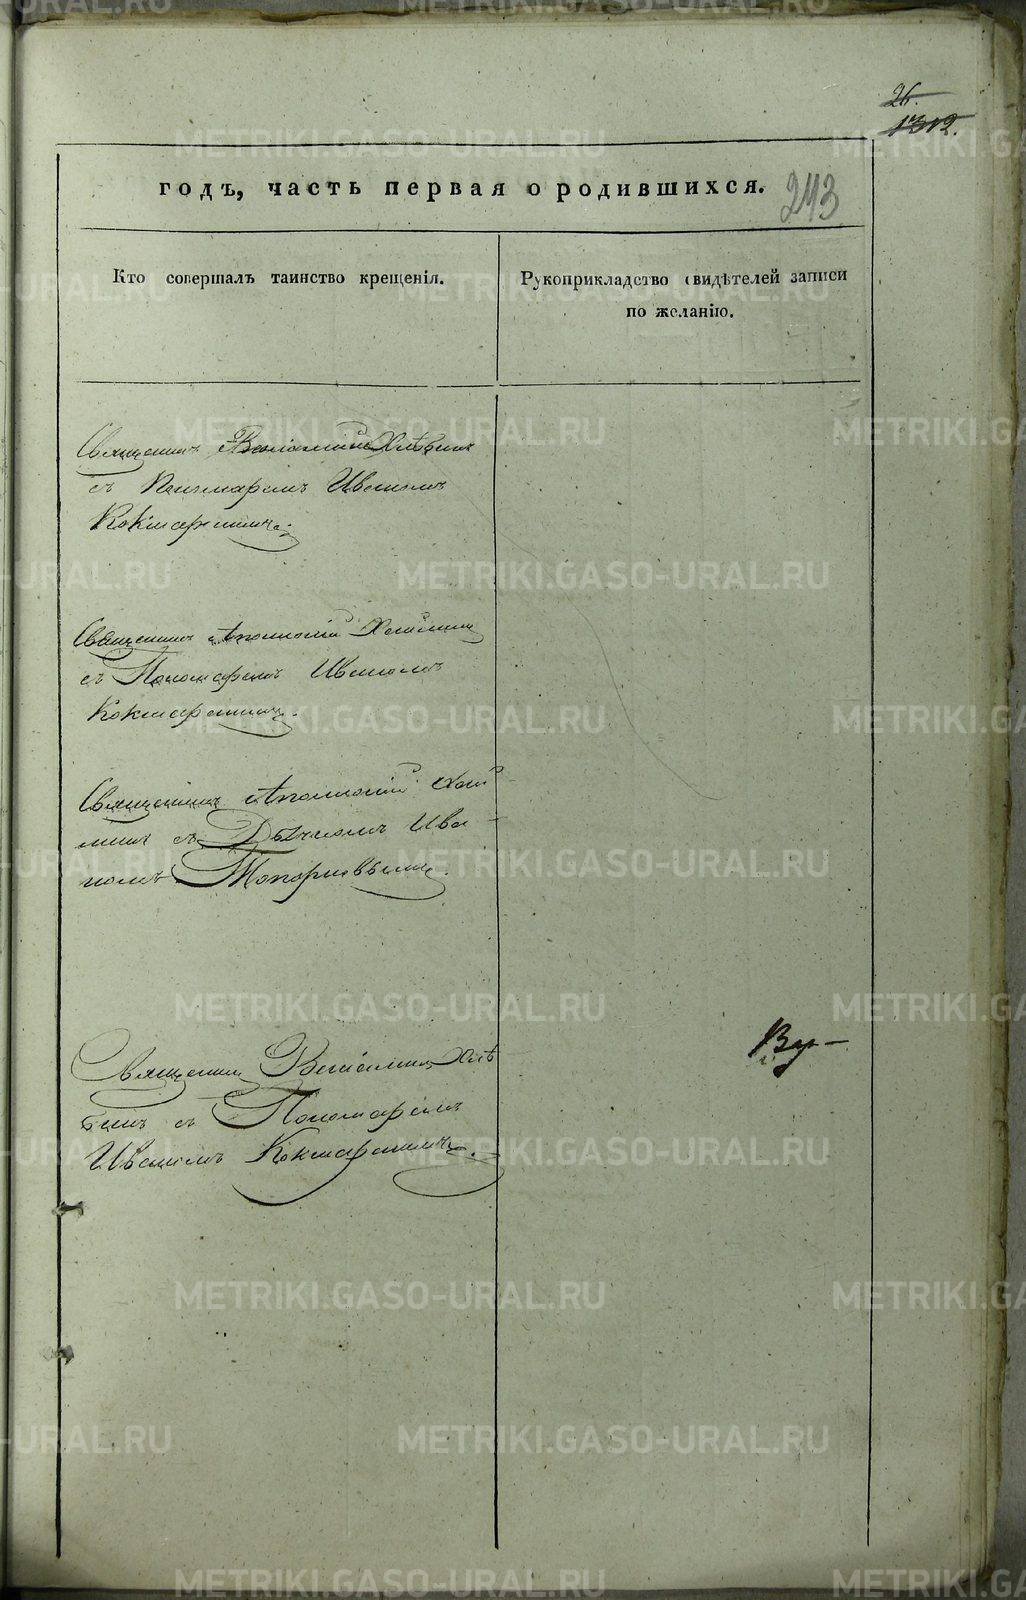 26.
1312.
годъ, часть первая о родившихся.
243
Кто совершалъ таинство крещенія.
Рукоприкладство свидѣтелей записи
по желанію.
Священникъ Веніаминъ Хлѣбинъ
съ Пономаремъ Иваномъ
Кокшарскимъ.
Священникъ Аполлоній
съ Пономаремъ Иваномъ
Кокшарскимъ.
Священникъ Аполлоній
съ Дьячкомъ Ива-
номъ Топорковымъ.
Священникъ Веніаминъ Хлѣ
бинъ съ Пономаремъ
Иваномъ Кокшарскимъ.
METRIKI.GASO-URAL.RU